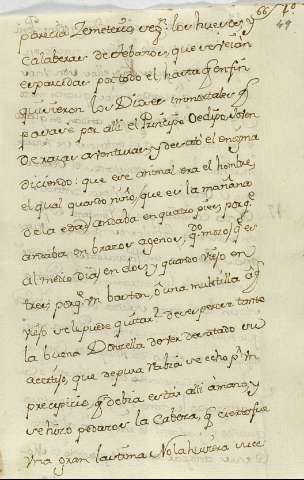 66 70
49
parecia Zementerio, segun los huesos, y
calaberas de rebanos, que se veian
esparcidas por todo el, hasta q en fin
quisieron los Dioses inmortales q
pasase por alli el Principe Oedipo, vsten
de raras aventuras y desató el enigma
diciendo: que ese animal era el hombre,
el qual quando niño, que es la mañana
de la edad, andaba en quatro pies, porq e
andaba en brazos agenos, qdo mozo, q es
al medio dia, en dos, y quando viejo en
tres, porq un baston, o una muletilla a q
viejo se le puede quitar? de ver perecer tanto
la buena Donzella de ver desatado su
acertijo, que de pura rabia se echo pr un
precipicio, q debia estar alli a mano, y
se hizo pedazos la Cabeza, q cierto fue
una gran lastima. No la huviera suce